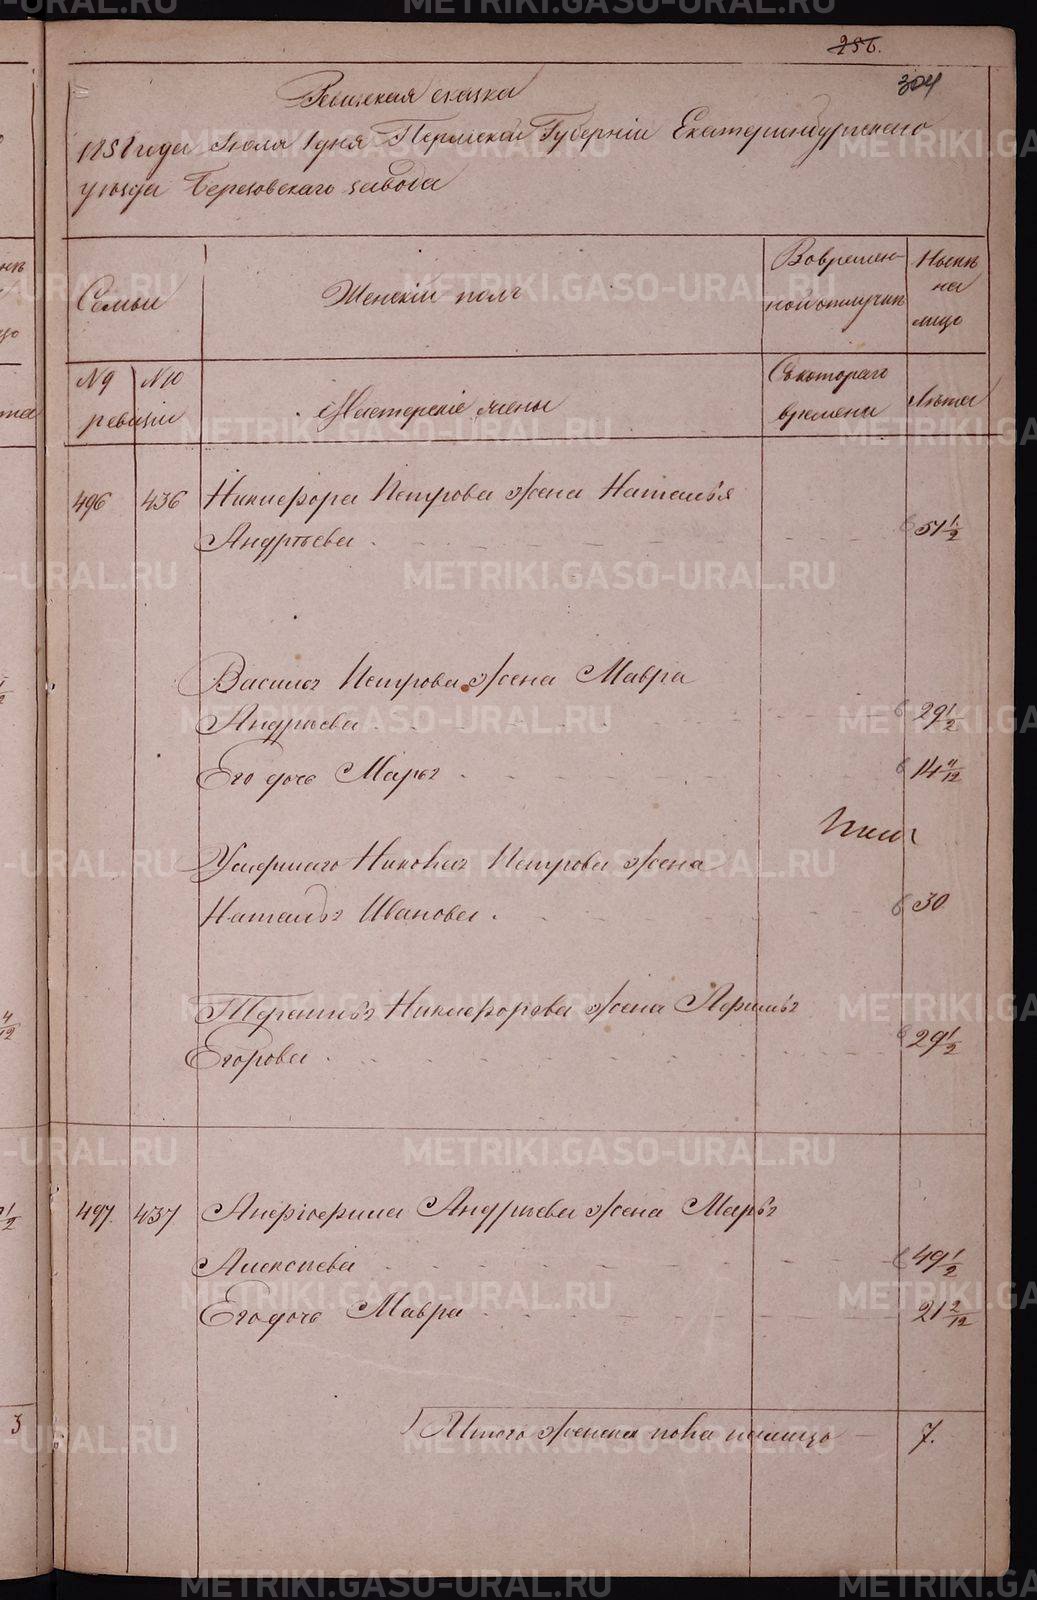 256.
304
Ревизская сказка
1858 года Июля 1 дня Пермской Губерніи Екатеринбургскаго
уѣзда Березовскаго завода
Семьи
Женскій полъ
Вовремен-
ной отлучкѣ
Нынѣ
на
лицо
N 9
N 10
ревизіи
Мастерскіе жены
Съ котораго
времени
Лѣта
496
436
Никифора Петрова жена Наталья
Андрѣева
51 1/2
Василья Петрова жена Мавра
Андрѣева
29 1/2
Его дочь Марья
14 11/12
Умершаго Никона Петрова жена
Наталья Иванова.
30
Терентья Никифорова жена Афимья
Егорова
29 1/2
497.
437
Андрѣева жена Марья
Алексѣева
49 1/2
Его дочь Мавра
21 2/12
Итого женска пола налицо
7.
METRIKI.GASO-URAL.RU